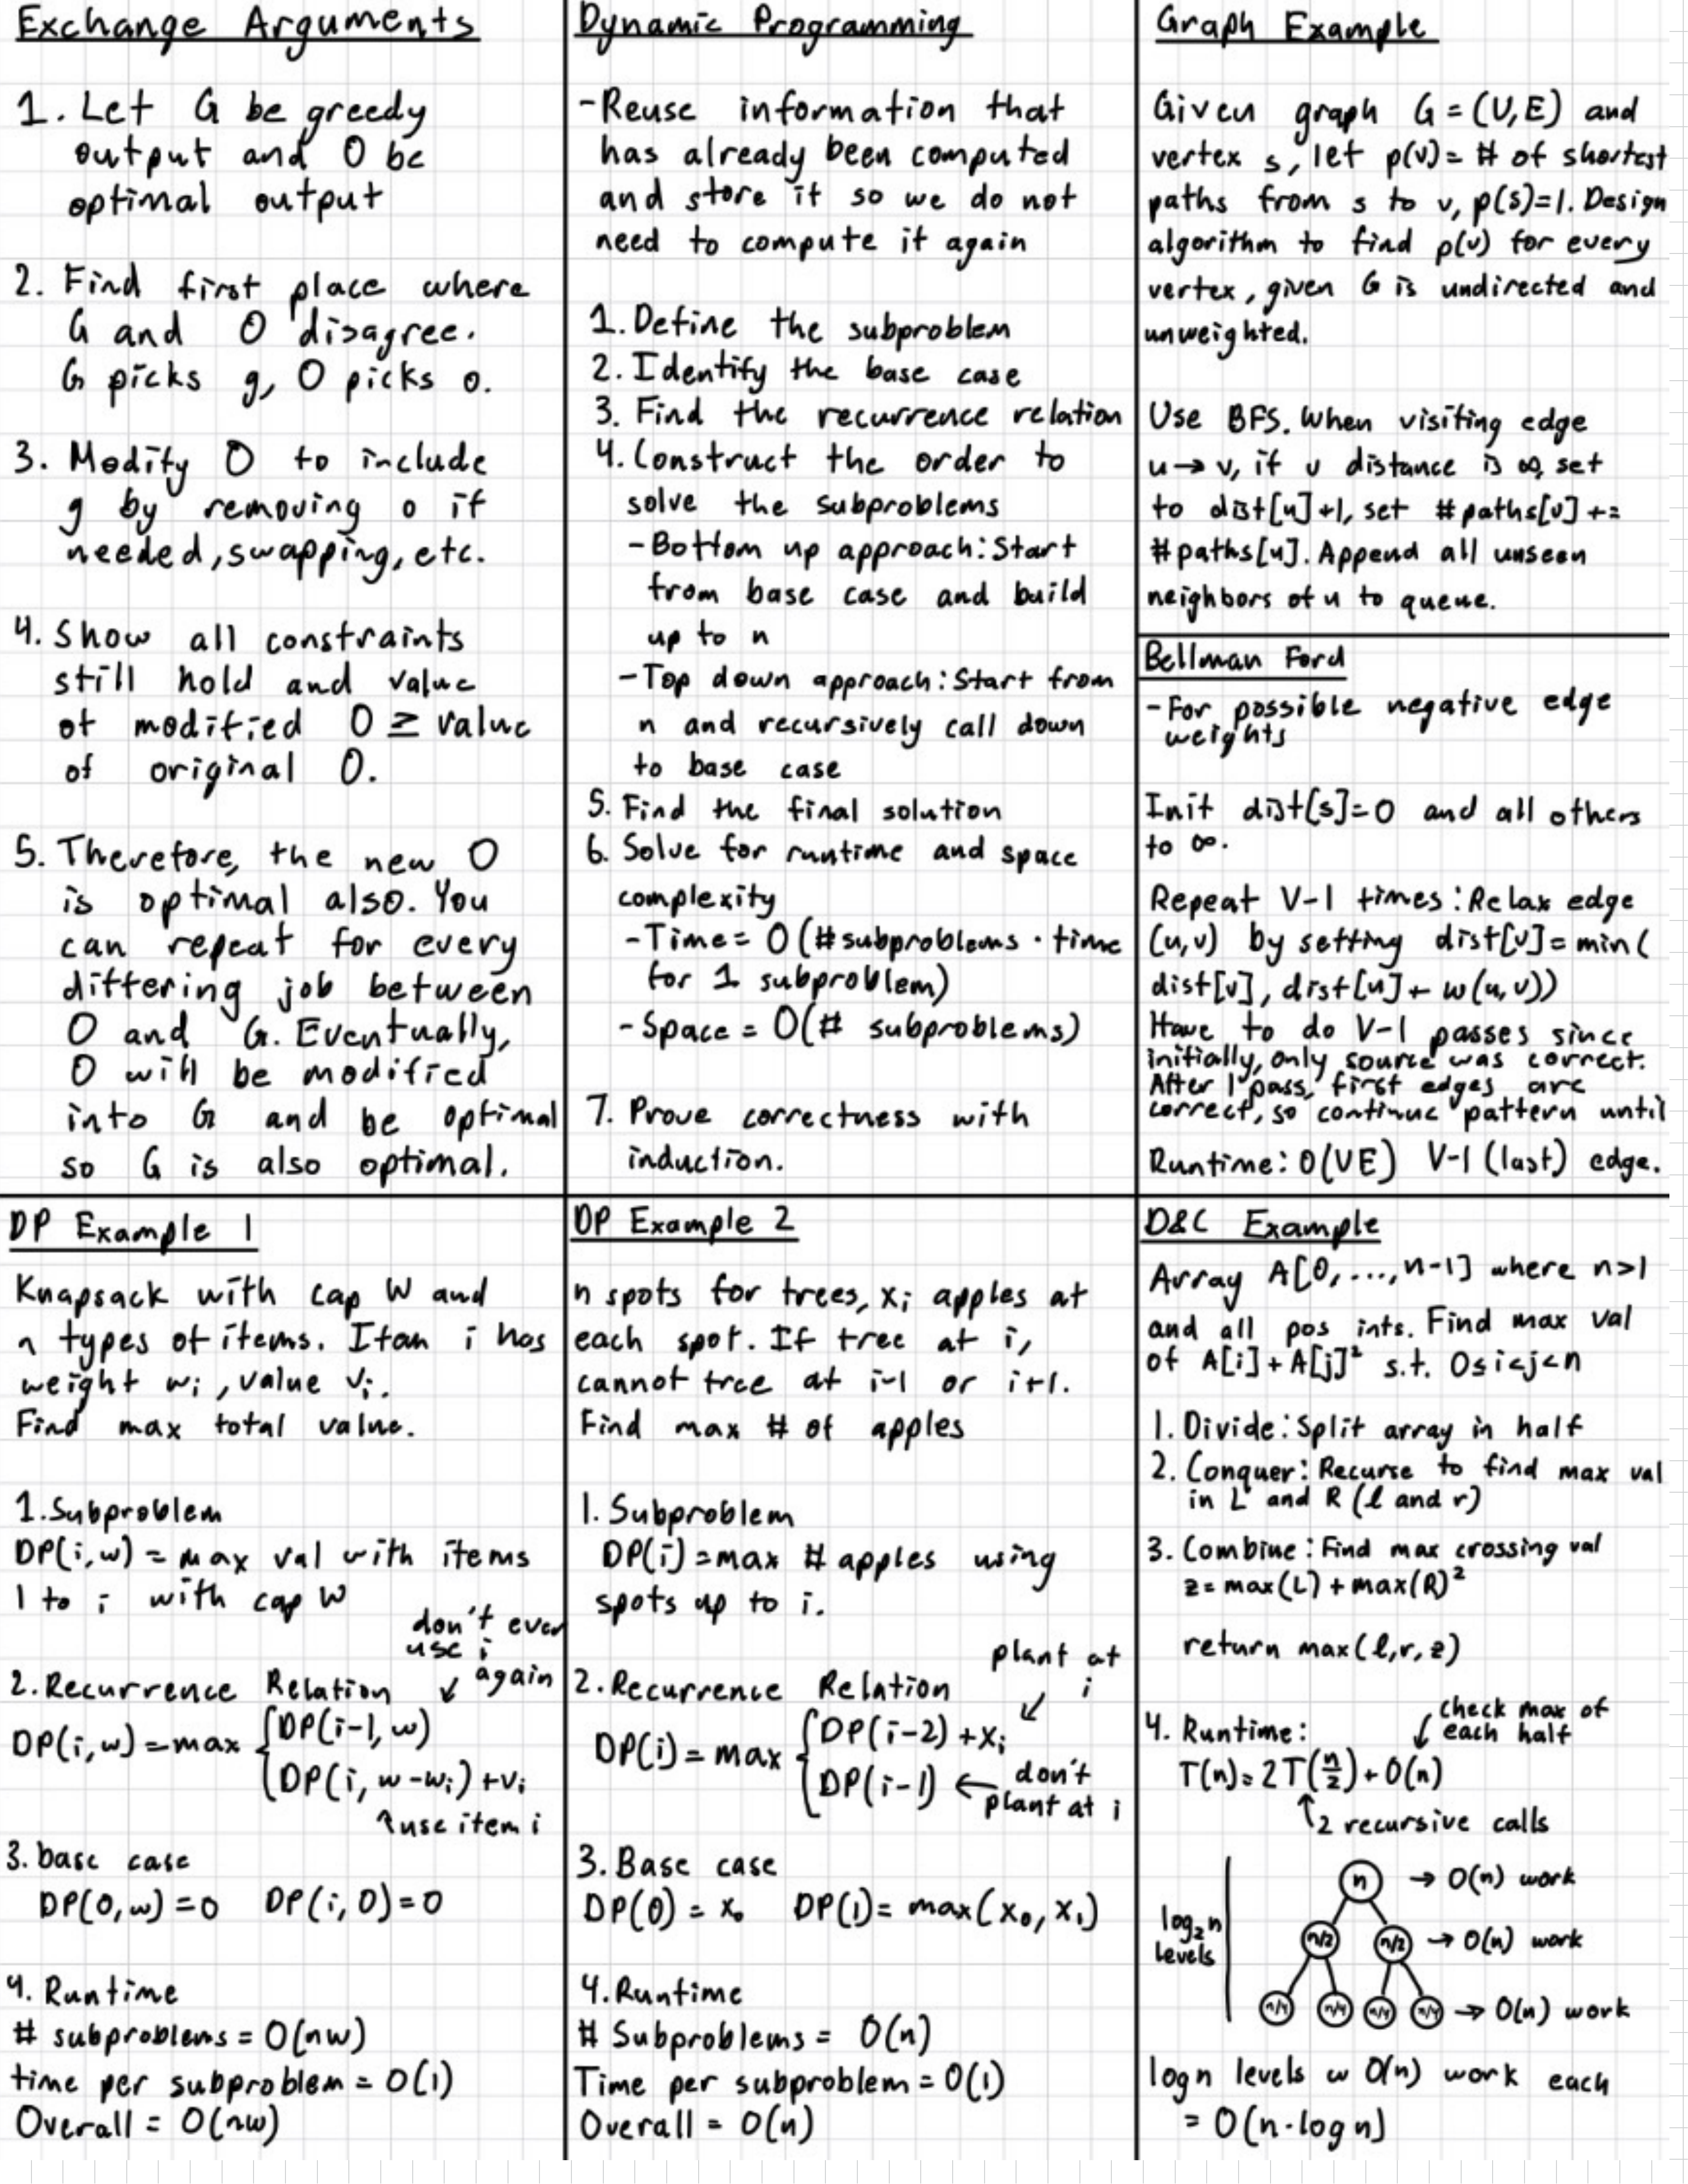 Exchange Arguments
1. Let G be greedy
output and O be
optimal output
2. Find first place where
G and O disagree.
G picks g, O picks o.
3. Modify O to include
g by removing o if
needed, swapping, etc.
4. Show all constraints
still hold and value
of modified O ≥ value
of original O.
5. Therefore, the new O
is optimal also. You
can repeat for every
differing job between
O and G. Eventually,
O will be modified
into G and be optimal
so G is also optimal.
Dynamic Programming
- Reuse information that
has already been computed
and store it so we do not
need to compute it again
1. Define the subproblem
2. Identify the base case
3. Find the recurrence relation
4. Construct the order to
solve the subproblems
- Bottom up approach: Start
from base case and build
up to n
- Top down approach: Start from
n and recursively call down
to base case
5. Find the final solution
6. Solve for runtime and space
complexity
- Time = O(# subproblems · time
for 1 subproblem)
- Space = O(# subproblems)
7. Prove correctness with
induction.
Graph Example
Given graph G = (V, E) and
vertex s, let p(v) = # of shortest
paths from s to v, p(s)=1. Design
algorithm to find p(v) for every
vertex, given G is undirected and
unweighted.
Use BFS. When visiting edge
u → v, if v distance is ∞, set
to dist[u]+1, set #paths[v] +=
#paths[u]. Append all unseen
neighbors of u to queue.
Bellman Ford
- For possible negative edge
weights
Init dist[s]=0 and all others
to ∞.
Repeat V-1 times: Relax edge
(u,v) by setting dist[v] = min(
dist[v], dist[u] + w(u,v))
Have to do V-1 passes since
initially, only source was correct.
After 1 pass, first edges are
correct, so continue pattern until
Runtime: O(VE) V-1 (last) edge.
DP Example 1
Knapsack with cap W and
n types of items. Item i has
weight wi, value vi.
Find max total value.
1. Subproblem
DP(i,w) = max val with items
1 to i with cap W
don't ever
use i
again
2. Recurrence Relation ↙
DP(i,w) = max { DP(i-1, w)
DP(i, w-wi) + vi
↖ use item i
3. base case
DP(0,w) = 0 DP(i,0) = 0
4. Runtime
# subproblems = O(nw)
time per subproblem = O(1)
Overall = O(nw)
DP Example 2
n spots for trees, xi apples at
each spot. If tree at i,
cannot tree at i-1 or i+1.
Find max # of apples
1. Subproblem
DP(i) = max # apples using
spots up to i.
plant at
i
2. Recurrence Relation ↙
DP(i) = max { DP(i-2) + xi
DP(i-1) ← don't
plant at i
3. Base case
DP(0) = x₀ DP(1) = max(x₀, x₁)
4. Runtime
# Subproblems = O(n)
Time per subproblem = O(1)
Overall = O(n)
D&C Example
Array A[0, ..., n-1] where n>1
and all pos ints. Find max val
of A[i] + A[j]² s.t. 0≤i<j<n
1. Divide: Split array in half
2. Conquer: Recurse to find max val
in L and R (l and r)
3. Combine: Find max crossing val
z = max(L) + max(R)²
return max(l, r, z)
check max of
4. Runtime: ↙ each half
T(n) = 2T(n/2) + O(n)
↑ 2 recursive calls
n → O(n) work
log₂n
levels
n/2 n/2 → O(n) work
n/4 n/4 n/4 n/4 → O(n) work
logn levels w O(n) work each
= O(n·logn)